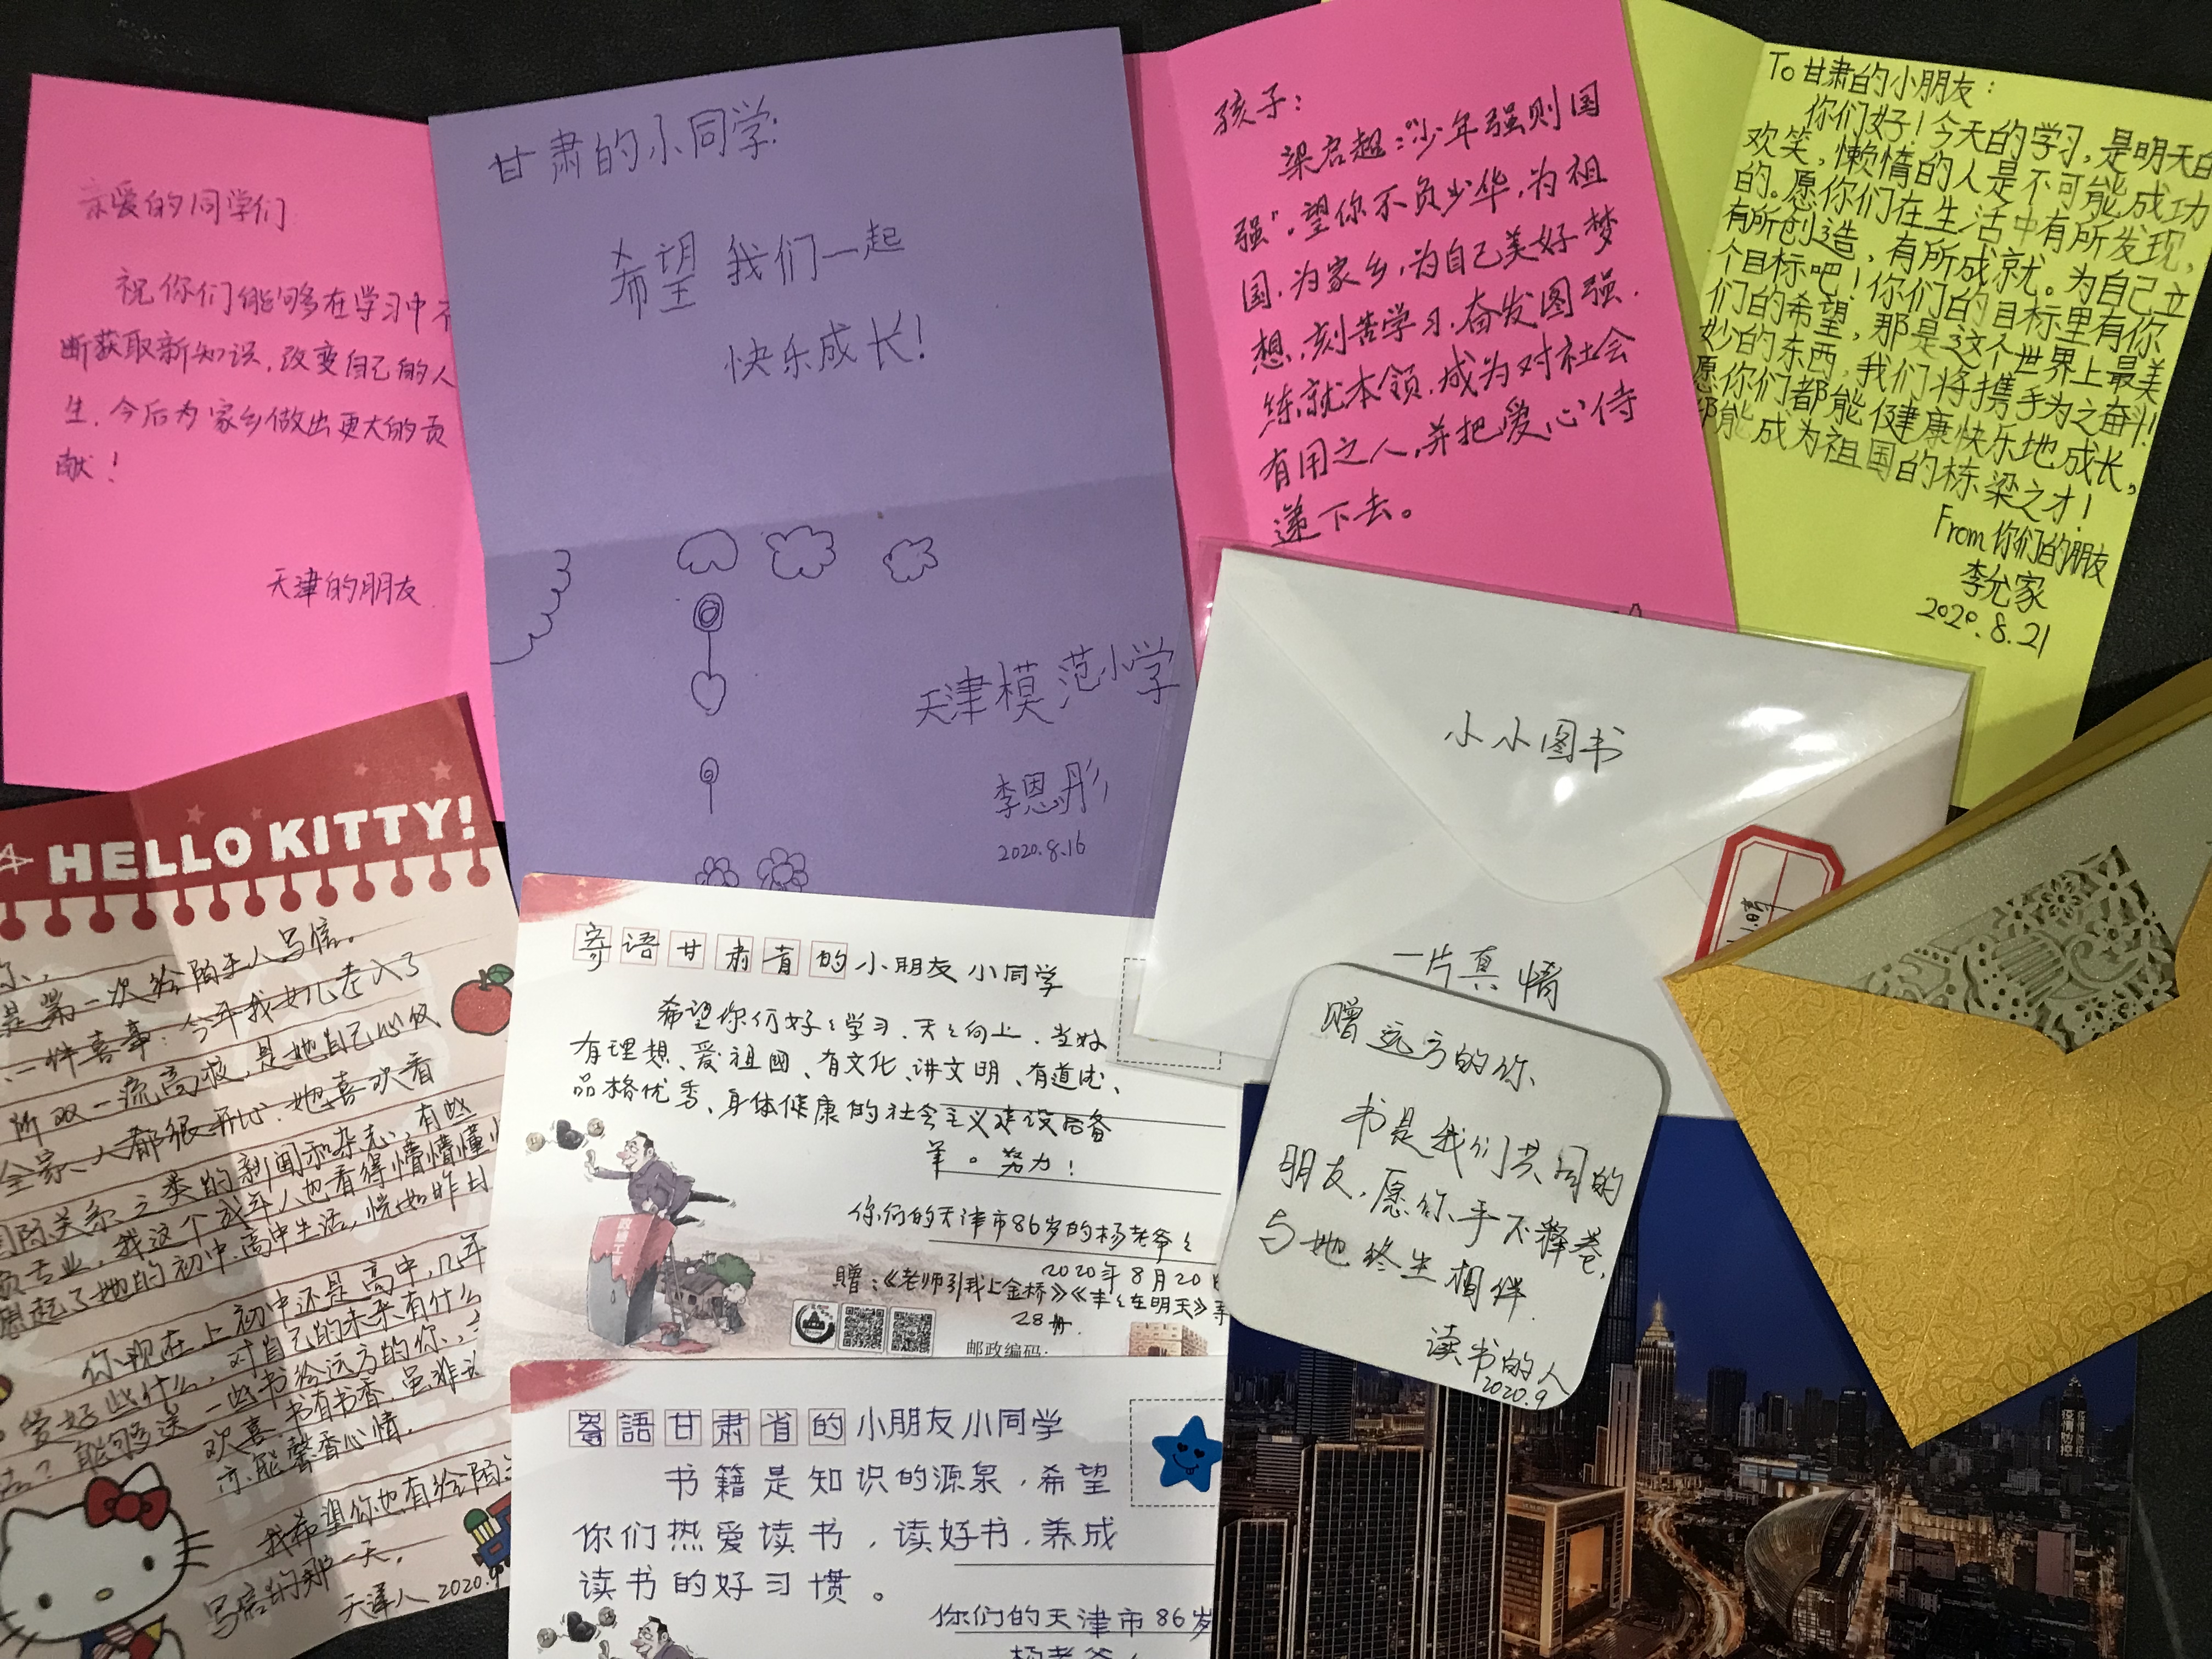 亲爱的同学们
祝你们能够在学习中不
断获取新知识,改变自己的人
生.今后为家乡做出更大的贡
献!
天津的朋友
甘肃的小同学:
希望 我们一起
快乐成长!
天津模范小学
李恩彤
2020.8.16
孩子:
梁启超:“少年强则国
强”。望你不负少华,为祖
国,为家乡,为自己美好梦
想,刻苦学习,奋发图强.
练就本领,成为对社会
有用之人,并把爱心传
递下去。
To 甘肃的小朋友:
你们好!今天的学习,是明天的
欢笑,懒惰的人是不可能成功
的。愿你们在生活中有所发现,
有所创造,有所成就。为自己立
个目标吧!你们的目标里有你
们的希望,那是这个世界上最美
妙的东西,我们将携手为之奋斗!
愿你们都能健康快乐地成长,
都能成为祖国的栋梁之才!
From 你们的朋友
李允家
2020.8.21
小小图书
一片真情
HELLO KITTY!
是第一次给陌生人写信。
一件喜事:今年我女儿考入了
所双一流高校,是她自己心仪
全家人都很开心.她喜欢看
国际关系之类的新闻和杂志,有些
专业,我这个成年人也看得懵懵懂
想起了她的初中.高中生活,恍如昨日
你现在上初中还是高中,几年
爱好些什么,对自己的未来有什么
?能够送一些书给远方的你,
欢喜.书有书香,虽非
亦能馨香心情.
我希望你也有给陌
写信的那一天.
天津人 2020.9
寄语甘肃省的小朋友小同学
希望你们好々学习、天々向上.当好
有理想、爱祖國、有文化、讲文明、有道德、
品格优秀、身体健康的社会主义建设后备
军。努力!
你们的天津市86岁的杨老爷々
2020年8月20日
赠:《老师引我上金桥》《丰々在明天》等
28册.
邮政编码:
寄語甘肃省的小朋友小同学
书籍是知识的源泉,希望
你们热爱读书,读好书,养成
读书的好习惯。
你们的天津市86岁
杨老爷々
赠远方的你、
书是我们共同的
朋友,愿你、手不释卷,
与她终生相伴.
读书的人
2020.9